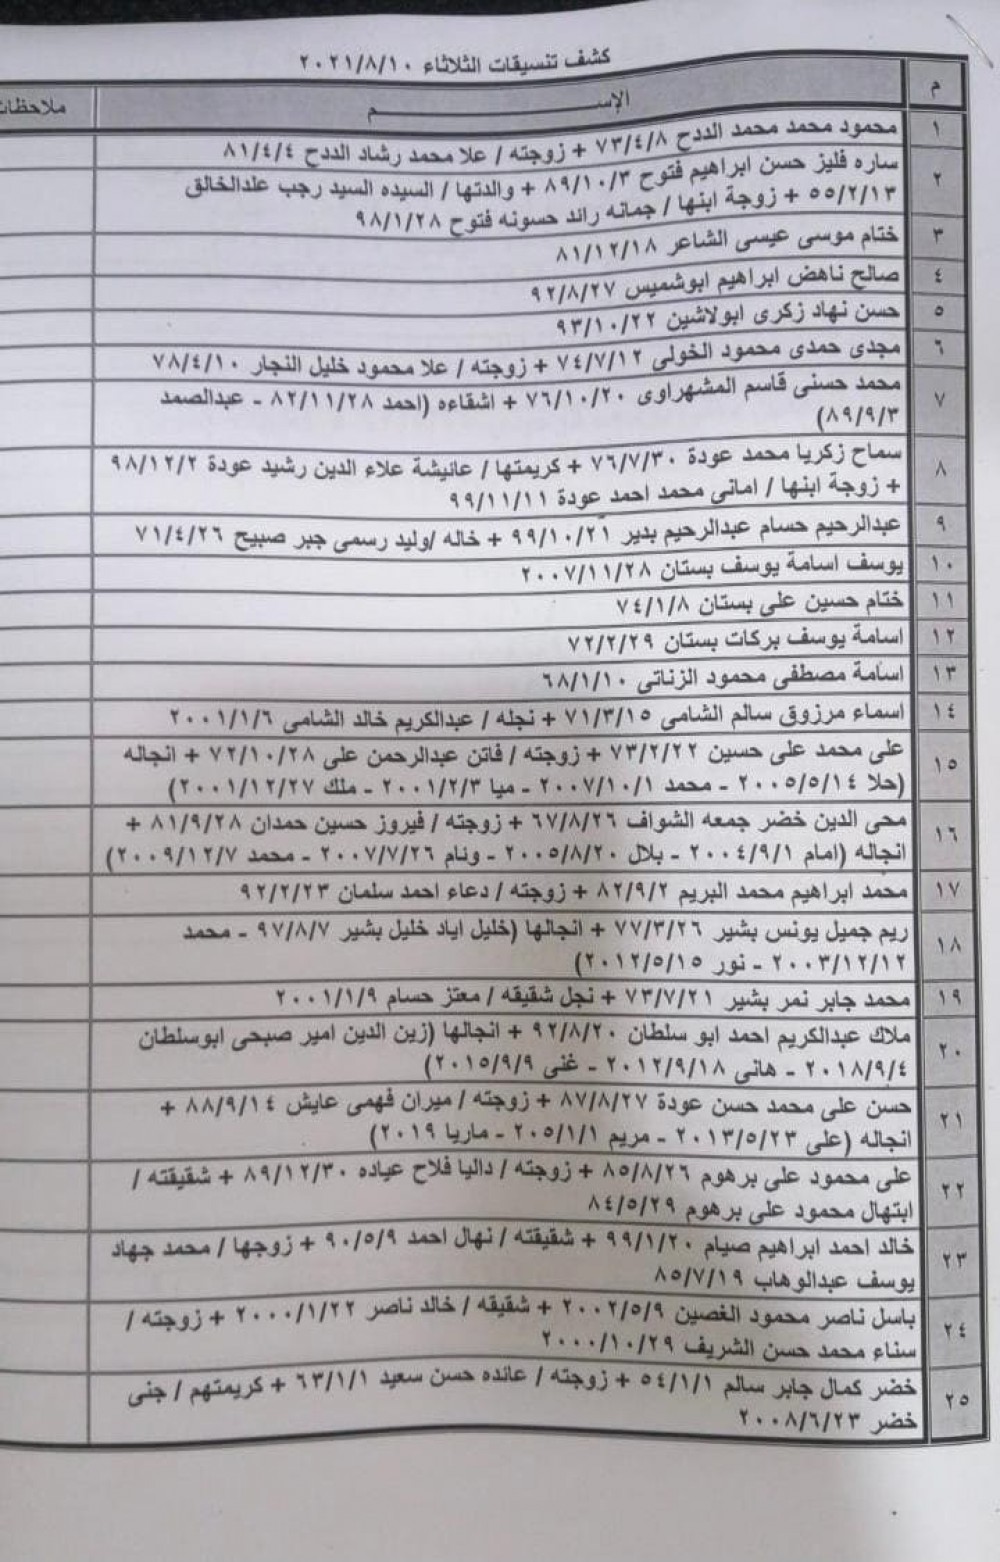 كشف تنسيقات الثلاثاء ٢٠٢١/٨/١٠
م
الإســـــــــم
ملاحظات
١
محمود محمد محمد الددح ٧٣/٤/٨ + زوجته / علا محمد رشاد الددح ٨١/٤/٤
٢
ساره فليز حسن ابراهيم فتوح ٨٩/١٠/٣ + والدتها / السيده السيد رجب علدالخالق
٥٥/٢/١٣ + زوجة ابنها / جمانه رائد حسونه فتوح ٩٨/١/٢٨
٣
ختام موسى عيسى الشاعر ٨١/١٢/١٨
٤
صالح ناهض ابراهيم ابوشميس ٩٢/٨/٢٧
٥
حسن نهاد زكرى ابولاشين ٩٣/١٠/٢٢
٦
مجدى حمدى محمود الخولى ٧٤/٧/١٢ + زوجته / علا محمود خليل النجار ٧٨/٤/١٠
٧
محمد حسنى قاسم المشهراوى ٧٦/١٠/٢٠ + اشقاءه (احمد ٨٢/١١/٢٨ - عبدالصمد
٨٩/٩/٣)
٨
سماح زكريا محمد عودة ٧٦/٧/٣٠ + كريمتها / عانيشة علاء الدين رشيد عودة ٩٨/١٢/٢
+ زوجة ابنها / امانى محمد احمد عودة ٩٩/١١/١١
٩
عبدالرحيم حسام عبدالرحيم بدير ٩٩/١٠/٢١ + خاله /وليد رسمى جبر صبيح ٧١/٤/٢٦
١٠
يوسف اسامة يوسف بستان ٢٠٠٧/١١/٢٨
١١
ختام حسين على بستان ٧٤/١/٨
١٢
اسامة يوسف بركات بستان ٧٢/٢/٢٩
١٣
اسامة مصطفى محمود الزناتى ٦٨/١/١٠
١٤
اسماء مرزوق سالم الشامى ٧١/٣/١٥ + نجله / عبدالكريم خالد الشامى ٢٠٠١/١/٦
١٥
على محمد على حسين ٧٣/٢/٢٢ + زوجته / فاتن عبدالرحمن على ٧٢/١٠/٢٨ + انجاله
(حلا ٢٠٠٥/٥/١٤ - محمد ٢٠٠٧/١٠/١ - ميا ٢٠٠١/٢/٣ - ملك ٢٠٠١/١٢/٢٧)
١٦
محى الدين خضر جمعه الشواف ٦٧/٨/٢٦ + زوجته / فيروز حسين حمدان ٨١/٩/٢٨ +
انجاله (امام ٢٠٠٤/٩/١ - بلال ٢٠٠٥/٨/٢٠ - ونام ٢٠٠٧/٧/٢٦ - محمد ٢٠٠٩/١٢/٧)
١٧
محمد ابراهيم محمد البريم ٨٢/٩/٢ + زوجته / دعاء احمد سلمان ٩٢/٢/٢٣
١٨
ريم جميل يونس بشير ٧٧/٣/٢٦ + انجالها (خليل اياد خليل بشير ٩٧/٨/٧ - محمد
٢٠٠٣/١٢/١٢ - نور ٢٠١٢/٥/١٥)
١٩
محمد جابر نمر بشير ٧٣/٧/٢١ + نجل شقيقه / معتز حسام ٢٠٠١/١/٩
٢٠
ملاك عبدالكريم احمد ابو سلطان ٩٢/٨/٢٠ + انجالها (زين الدين امير صبحى ابوسلطان
٢٠١٨/٩/٤ - هانى ٢٠١٢/٩/١٨ - غنى ٢٠١٥/٩/٩)
٢١
حسن على محمد حسن عودة ٨٧/٨/٢٧ + زوجته / ميران فهمى عايش ٨٨/٩/١٤ +
انجاله (على ٢٠١٣/٥/٢٣ - مريم ٢٠٥/١/١ - ماريا ٢٠١٩)
٢٢
على محمود على برهوم ٨٥/٨/٢٦ + زوجته / داليا فلاح عياده ٨٩/١٢/٣٠ + شقيقته /
ابتهال محمود على برهوم ٨٤/٥/٢٩
٢٣
خالد احمد ابراهيم صيام ٩٩/١/٢٠ + شقيقته / نهال احمد ٩٠/٥/٩ + زوجها / محمد جهاد
يوسف عبدالوهاب ٨٥/٧/١٩
٢٤
باسل ناصر محمود الغصين ٢٠٠٢/٥/٩ + شقيقه / خالد ناصر ٢٠٠٠/١/٢٢ + زوجته /
سناء محمد حسن الشريف ٢٠٠٠/١٠/٢٩
٢٥
خضر كمال جابر سالم ٥٤/١/١ + زوجته / عائده حسن سعيد ٦٣/١/١ + كريمتهم / جنى
خضر ٢٠٠٨/٦/٢٣